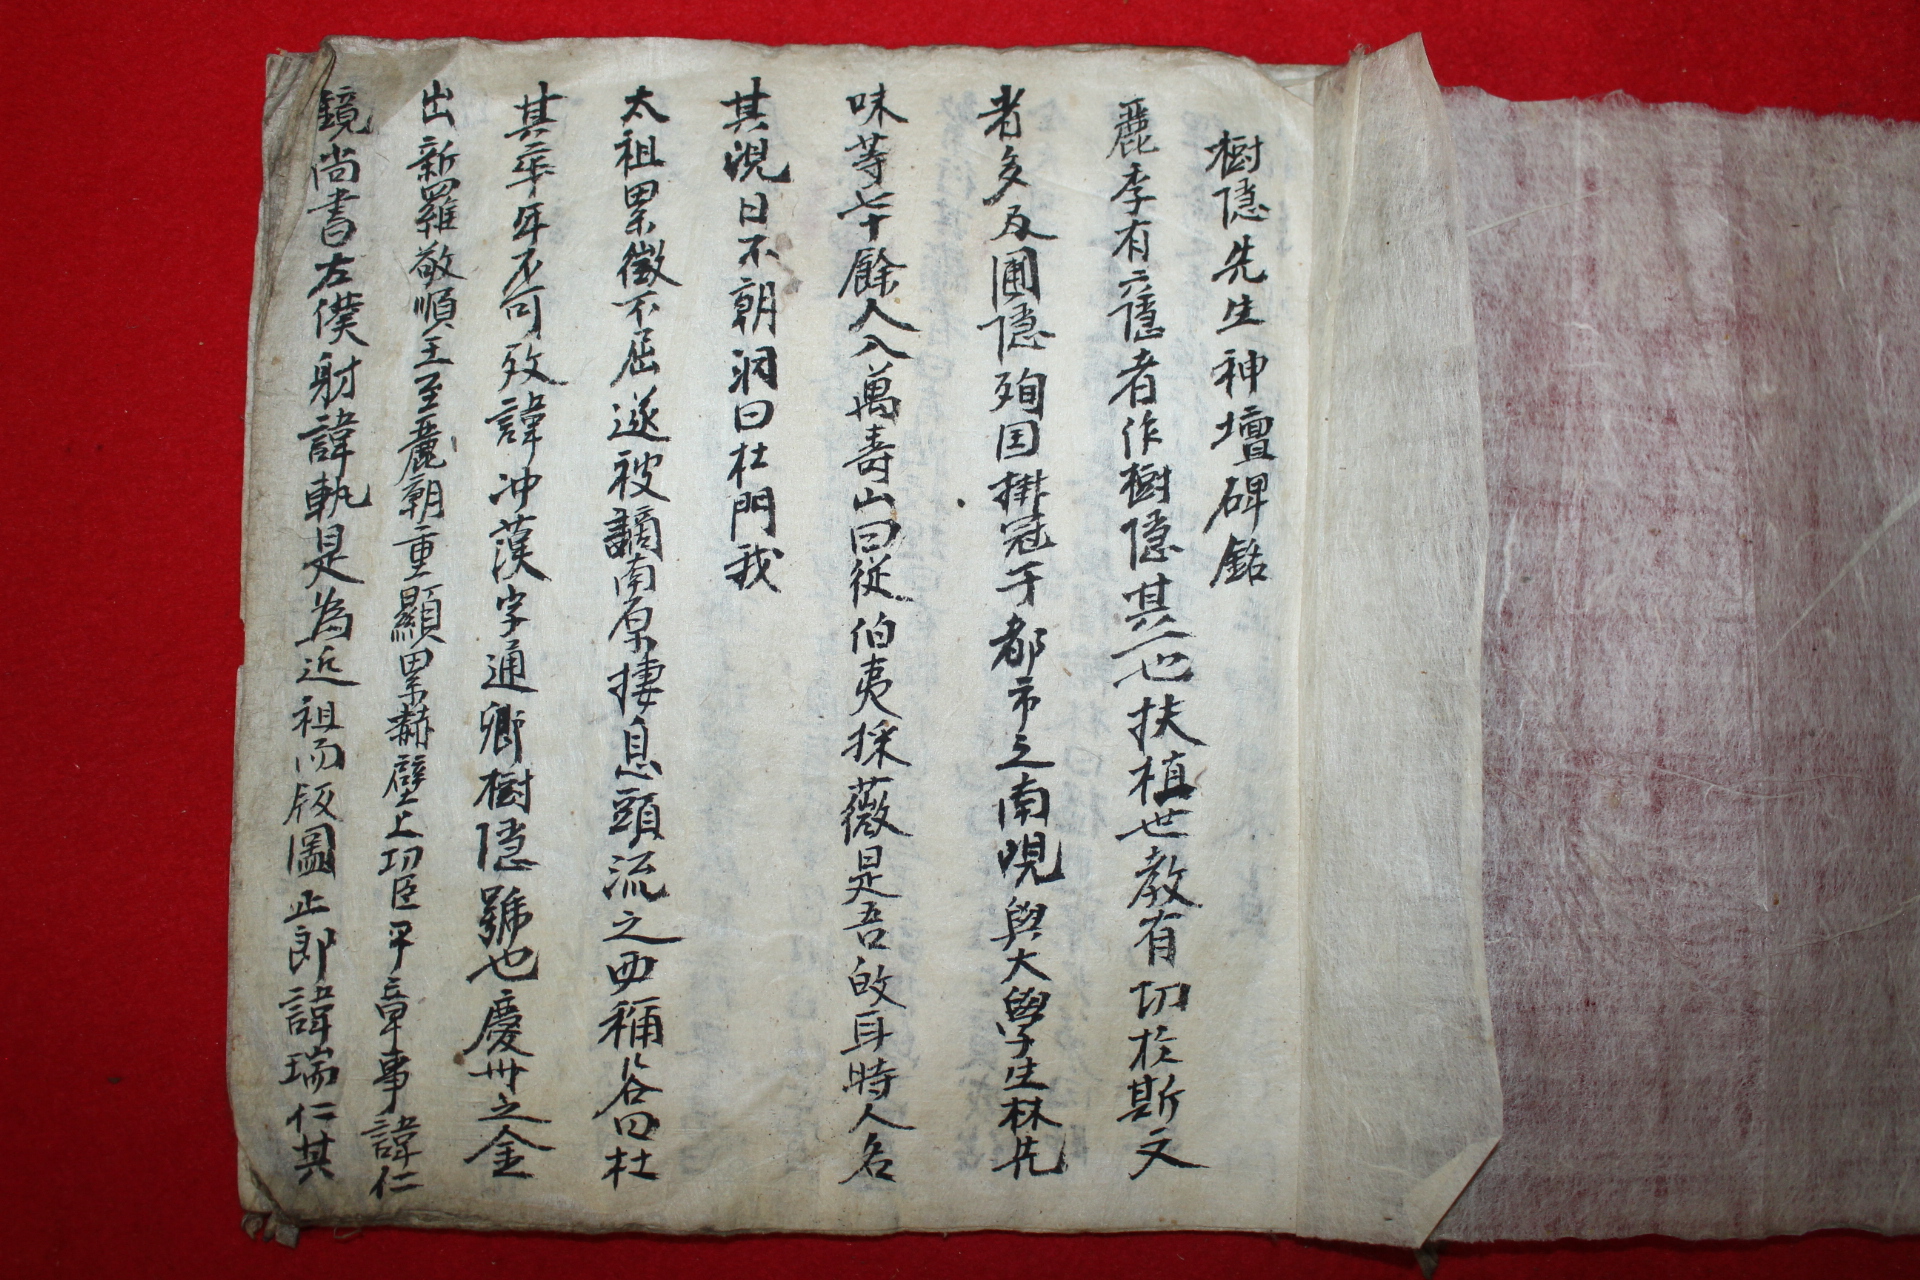 樹隱先生神壇碑銘
麗季有六隱者作樹隱其一也扶植世敎有功於斯文
者多及圃隱殉国掛冠于都市之南峴與大學生林先
味等七十餘人入萬壽山曰從伯夷採薇是吾故耳時人名
其峴曰不朝洞曰杜門我
太祖累徵不屈遂被謫南原捿息頭流之西稱谷曰杜
其卒年不可攷諱冲漢字通卿樹隱號也慶州之金
出新羅敬順王至麗朝重顯累赫壁上功臣平章事諱仁
鏡尚書左僕射諱軌是為近祖而版圖正郎諱瑞仁其